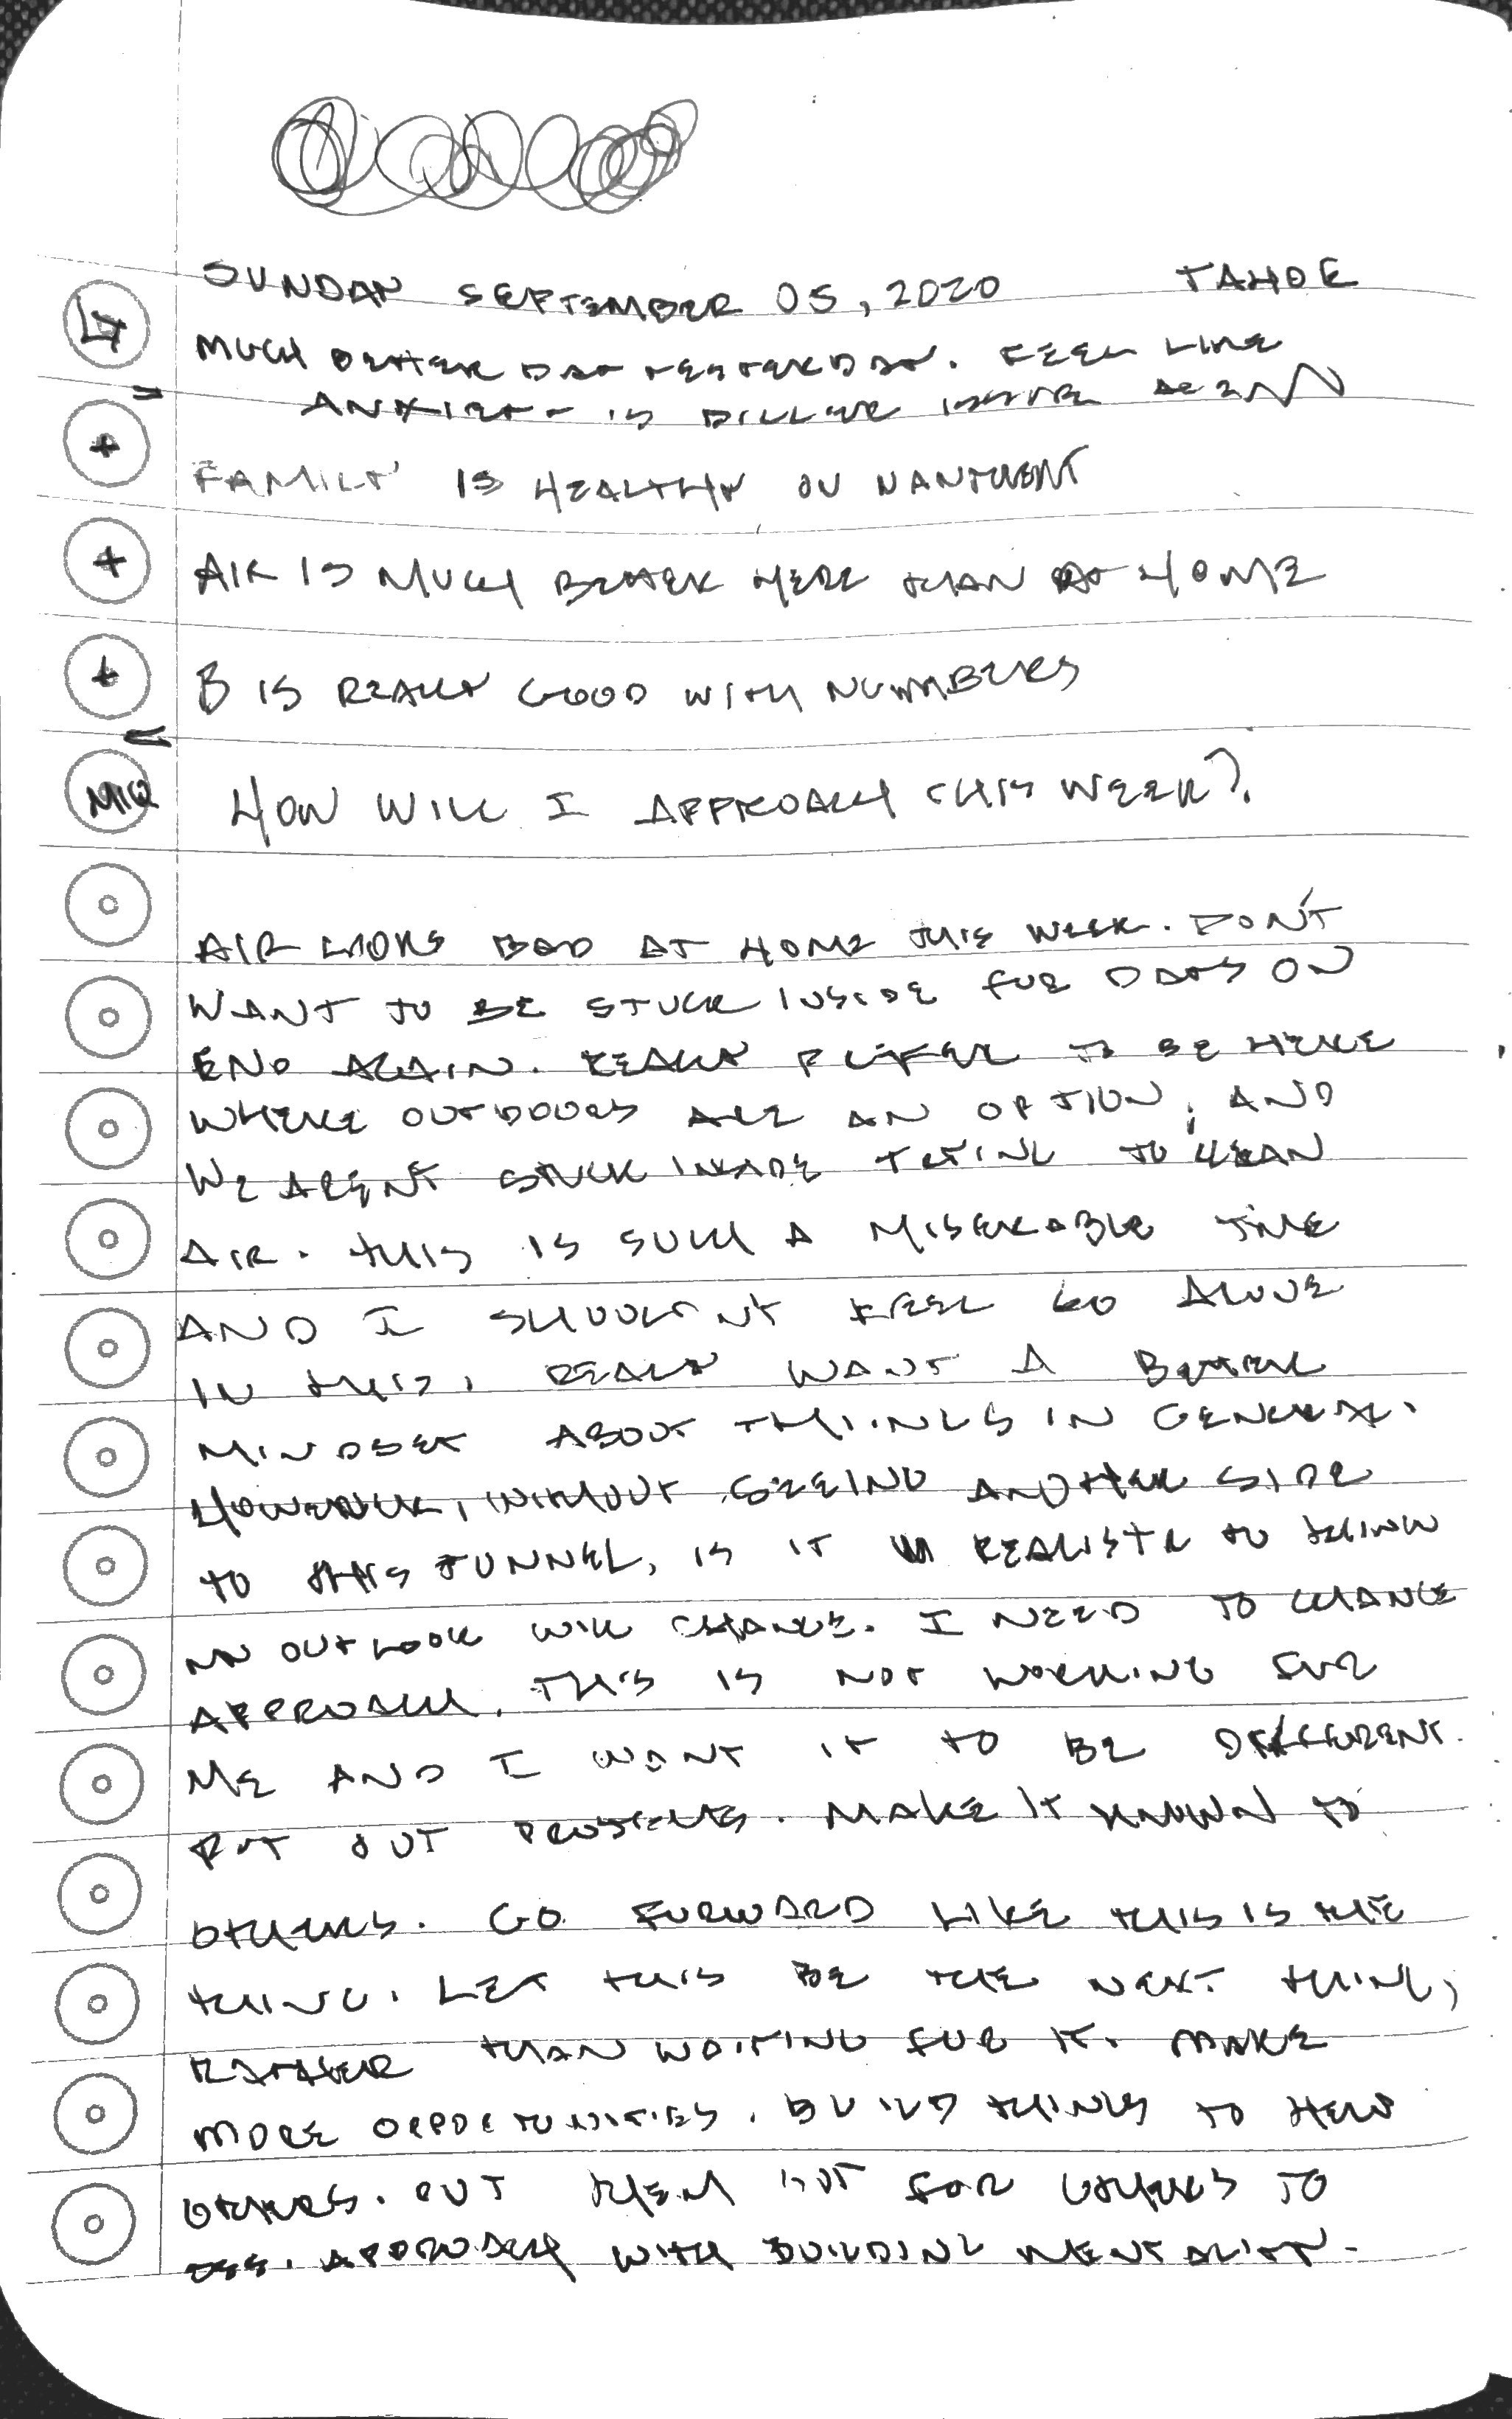 SUNDAY SEPTEMBER 05, 2020 TAHOE
LT
MUCH BETTER DAY YESTERDAY. FEEL LIKE
ANXIETY IS INSIDE AGAIN
+ FAMILY IS HEALTHY ON NANTUCKET
+ AIR IS MUCH BETTER HERE THAN AT HOME
+ B IS REALLY GOOD WITH NUMBERS
MIQ HOW WILL I APPROACH THIS WEEK?
AIR LOOKS BAD AT HOME THIS WEEK. DON'T
WANT TO BE STUCK INSIDE FOR DAYS ON
END AGAIN. REALLY PREFER TO BE HERE
WHERE OUTDOORS ARE AN OPTION, AND
WE AREN'T STUCK INSIDE TRYING TO CLEAN
AIR. THIS IS SUCH A MISERABLE TIME
AND I SHOULDN'T FEEL SO ALONE
IN THIS, REALLY WANT A BETTER
MINDSET ABOUT THINGS IN GENERAL.
HOWEVER, WITHOUT SEEING ANOTHER SIDE
TO THIS TUNNEL, IS IT REALISTIC TO THINK
MY OUTLOOK WILL CHANGE. I NEED TO CHANGE
APPROACH. THIS IS NOT WORKING FOR
ME AND I WANT IT TO BE DIFFERENT.
PUT OUT PROJECTS. MAKE IT KNOWN TO
OTHERS. GO FORWARD LIKE THIS IS THE
THING. LET THIS BE THE NEXT THING,
RATHER THAN WAITING FOR IT. MAKE
MORE OPPORTUNITIES. BUILD THINGS TO HELP
OTHERS. PUT THEM OUT FOR OTHERS TO
USE. APPROACH WITH BUILDING MENTALITY.